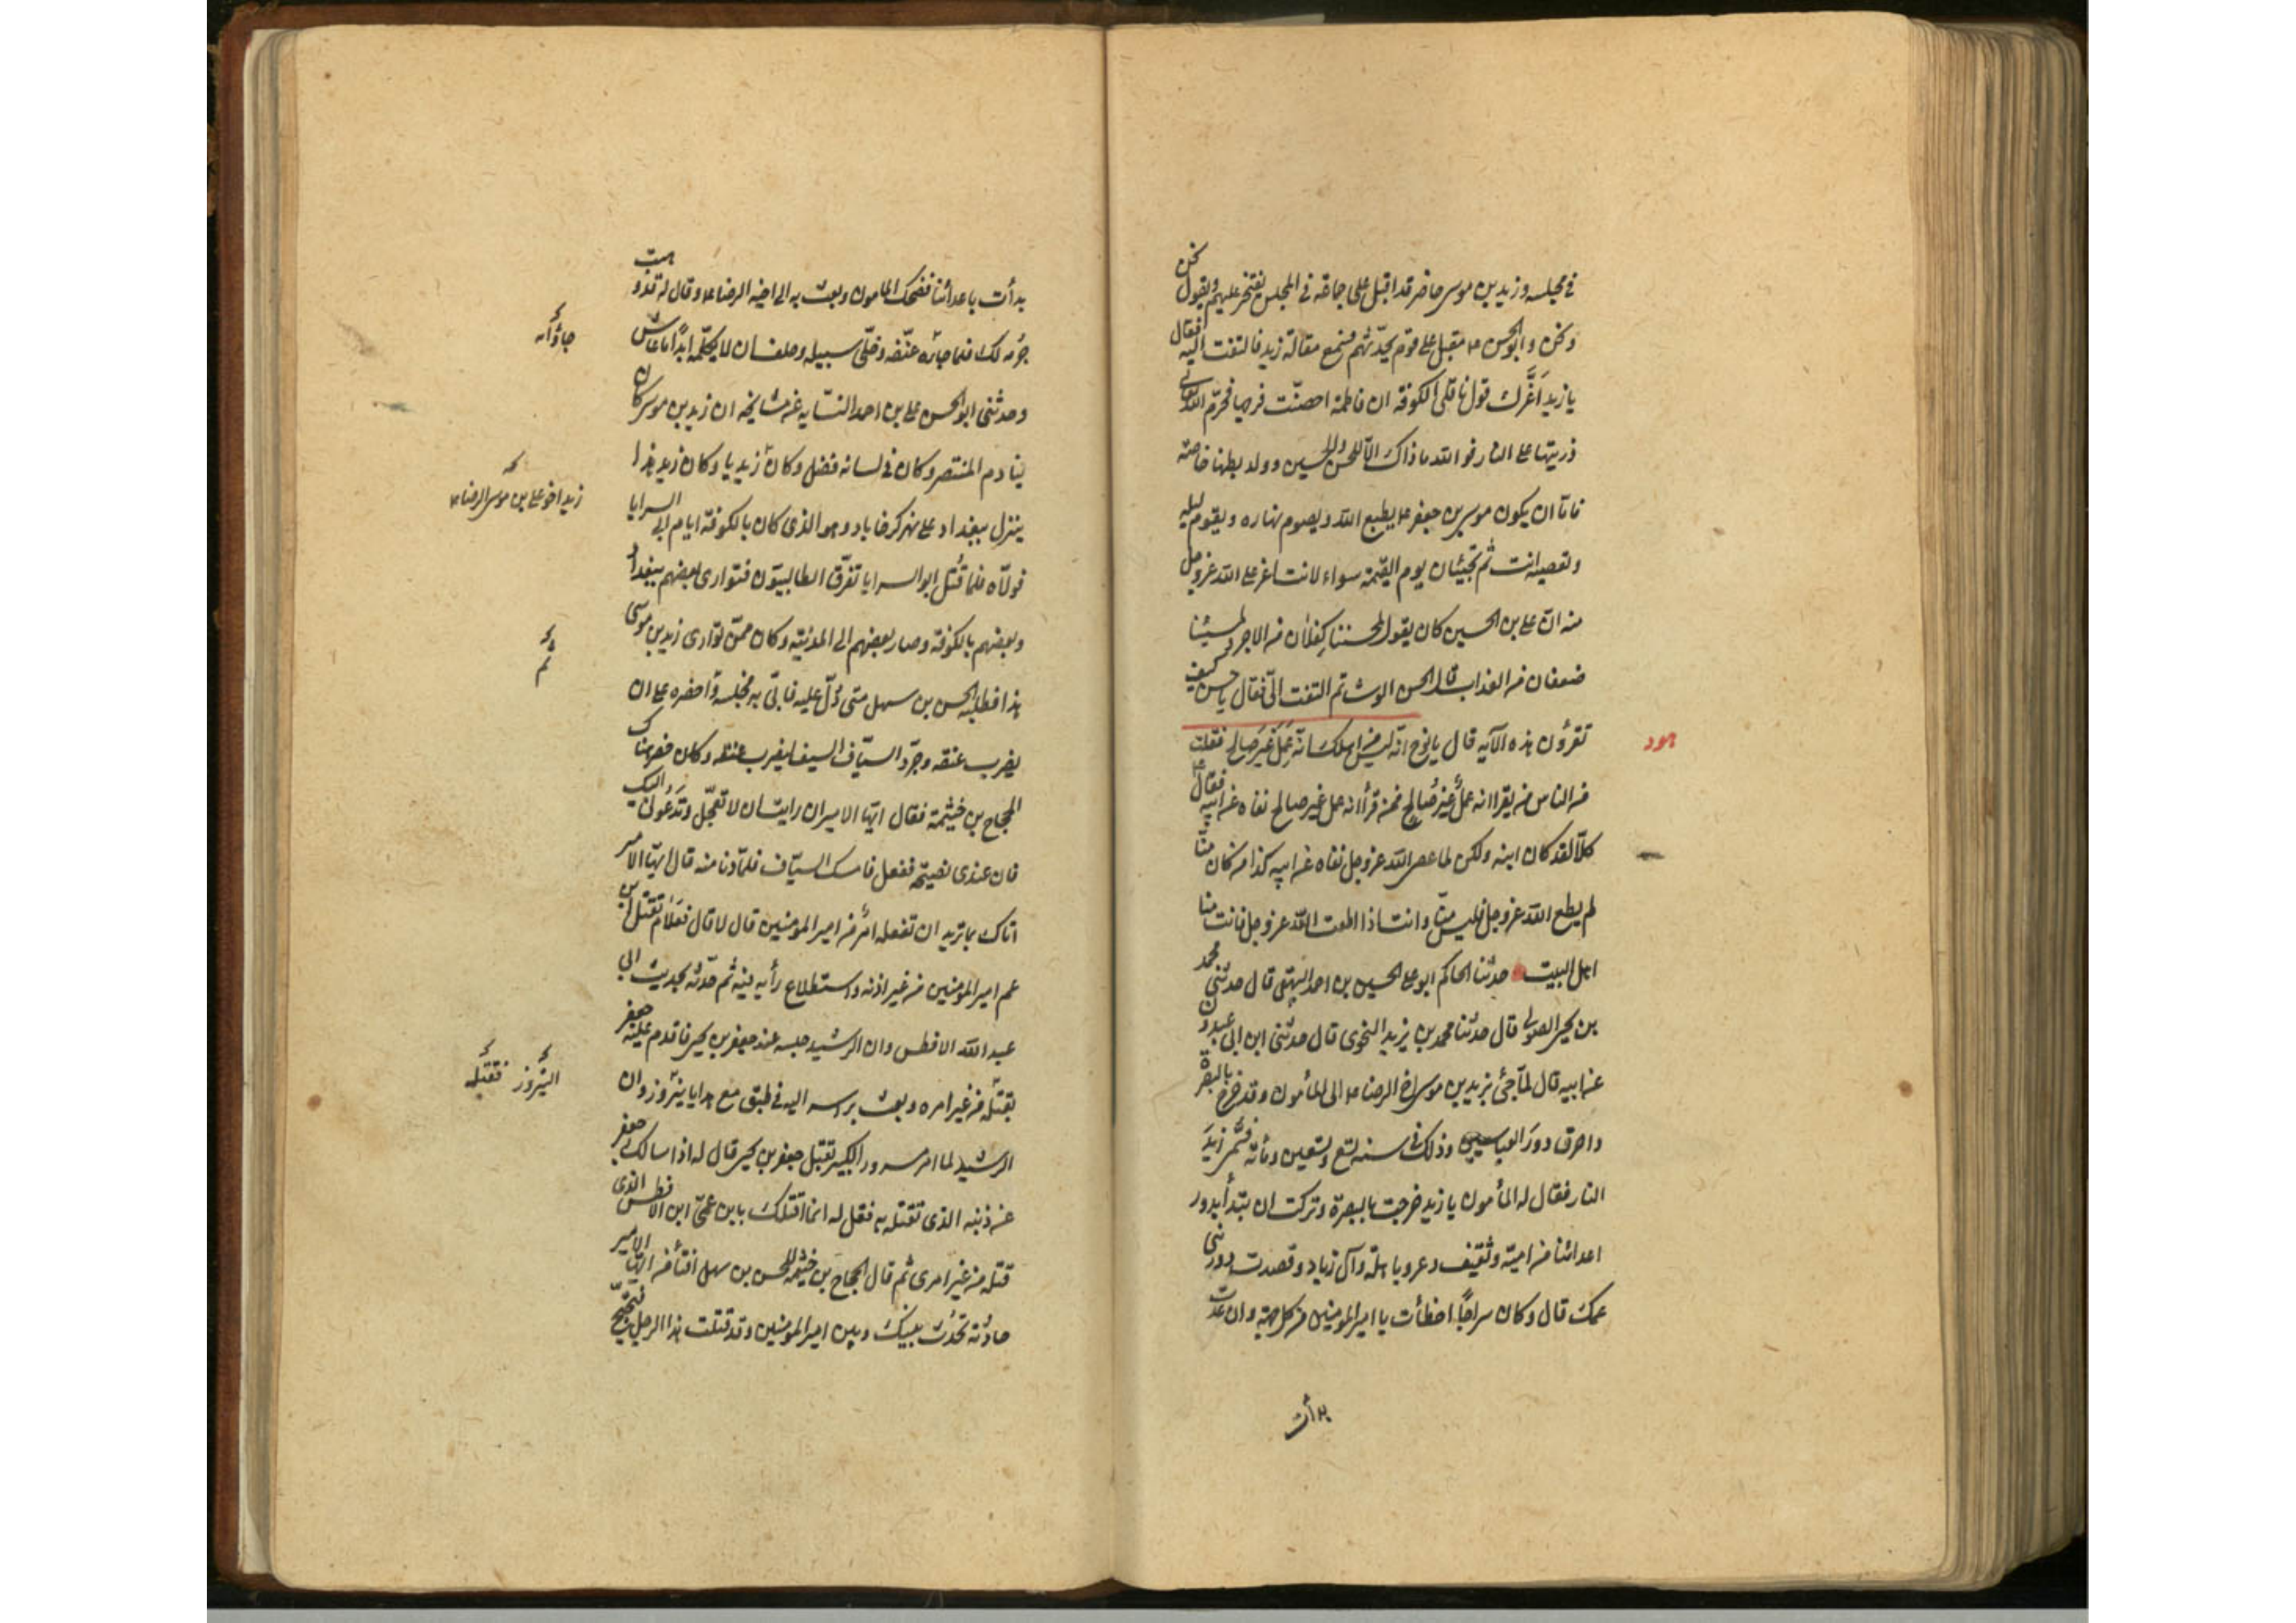 في مجلسه وزيد بن موسى حاضر قد اقبل على جماعة في المجلس يفتخر عليهم ويقول نحن
ونحن وابو الحسن ع مقبل على قوم يحدّثهم فسمع مقالة زيد فالتفت اليه فقال
يا زيد اَغَرَّك قول ناقلي الكوفة ان فاطمة احصنت فرجها فحرّم الله تعالى
ذريتها على النار فو الله ما ذاك الّا للحسن والحسين وولد بطنها خاصّة
فامّا ان يكون موسى بن جعفر ع يطيع الله ويصوم نهاره ويقوم ليله
وتعصيه انت ثم تجيئان يوم القيمة سواء لانت اعز على الله عز وجل
منه انّ علي بن الحسين كان يقول لمحسننا كفلان من الاجر ولمسيئنا
ضعفان من العذاب قال الحسن الوشا ثم التفت الىّ فقال يا حسن كيف
تقرؤن هذه الآيه قال يا نوح انّه ليس من اهلك انّه عَمَلٌ غَيرُ صالح فقلت
هود
من الناس من يقرا انه عملٌ غيرُ صالح فمن قرأ انه عمل غير صالح نفاه عن ابيه فقال ع
كلّا لقد كان ابنه ولكن لما عصى الله عز وجل نفاه عن ابيه كذا من كان منّا
لم يطع الله عز وجل فليس منّا وانت اذا اطعت الله عز وجل فانت منا
اهل البيت حدثنا الحاكم ابو علي الحسين بن احمد البيهقي قال حدثني محمد
بن يحيى الصولي قال حدثنا محمد بن يزيد النحوي قال حدثني ابن ابي عبدون
عن ابيه قال لمّا جئ بزيد بن موسى اخ الرضا ع الى المأمون وقد خرج بالبصرة
واحرق دورَ العباسيين وذلك في سنه تسع وتسعين ومأته فسُمّي زيدَ
النار فقال له المأمون يا زيد خرجت بالبصرة وتركت ان تبدأ بدور
اعدائنا من امية وثقيف وعدى وباهلة وآل زياد وقصدت دور بني
عمك قال وكان مزاحًا اخطأت يا امير المؤمنين من كل جهة وان عدت
بدأت
بدأت باعدائنا فضحك المامون وبعث به الى اخيه الرضا ع وقال له قد وهبت
جرمه لك فلما جاءه عنّفه وخلّى سبيله وحلف ان لا يكلّمه ابدًا ما عاش
جاؤا به
وحدثني ابو الحسن علي بن احمد النسّابه عن مشايخه ان زيد بن موسى كان
ينادم المنتصر وكان في لسانه فضل وكان زيديا وكان زيد هذا
زيد اخو علي بن موسى الرضا ع
ينزل ببغداد على نهر كرخايا وهو الذي كان بالكوفة ايام ابي السرايا
فولّاه فلمّا قُتل ابو السرايا تفرّق الطالبيّون فتوارى بعضهم ببغداد
وبعضهم بالكوفة وصار بعضهم الى المدينة وكان ممّن توارى زيد بن موسى
ثم
هذا فطلبه الحسن بن سهل حتى دُلّ عليه فاتي به فحبسه واحضره على ان
يضرب عنقه وجرّد السيّاف السيف ليضرب عنقه وكان حضر هناك
الحجاج بن خيثمة فقال ايّها الامير ان رايت ان لا تعجّل وتدعوني اليك
فان عندي نصيحة ففعل فامسك السيّاف فلمّا دنا منه قال ايّها الامير
اتاك بما تريد ان تفعله امرٌ من امير المؤمنين قال لا قال فعَلامَ تقتل ابن
عم امير المؤمنين من غير اذنه واستطلاع رأيه فيه ثم حدّثه بحديث ابي
عبد الله الافطس وان الرشيد حبسه عند جعفر بن يحيى فاقدم عليه جعفر
بقتله من غير امره وبعث براسه اليه في طبق مع هدايا نيروز وان
النيروز فقتله
الرشيد لما امر مسرور الكبير بقتل جعفر بن يحيى قال له اذا سالك جعفر
عن ذنبه الذي تقتله به فقل له انما اقتلك بابن عمّي ابن الافطس الذي
قتلته من غير امري ثم قال الحجاج بن خيثمة للحسن بن سهل افتأمن ايّها الامير
حادثة تحدث بينك وبين امير المؤمنين وقد قتلت هذا الرجل فيحتجّ